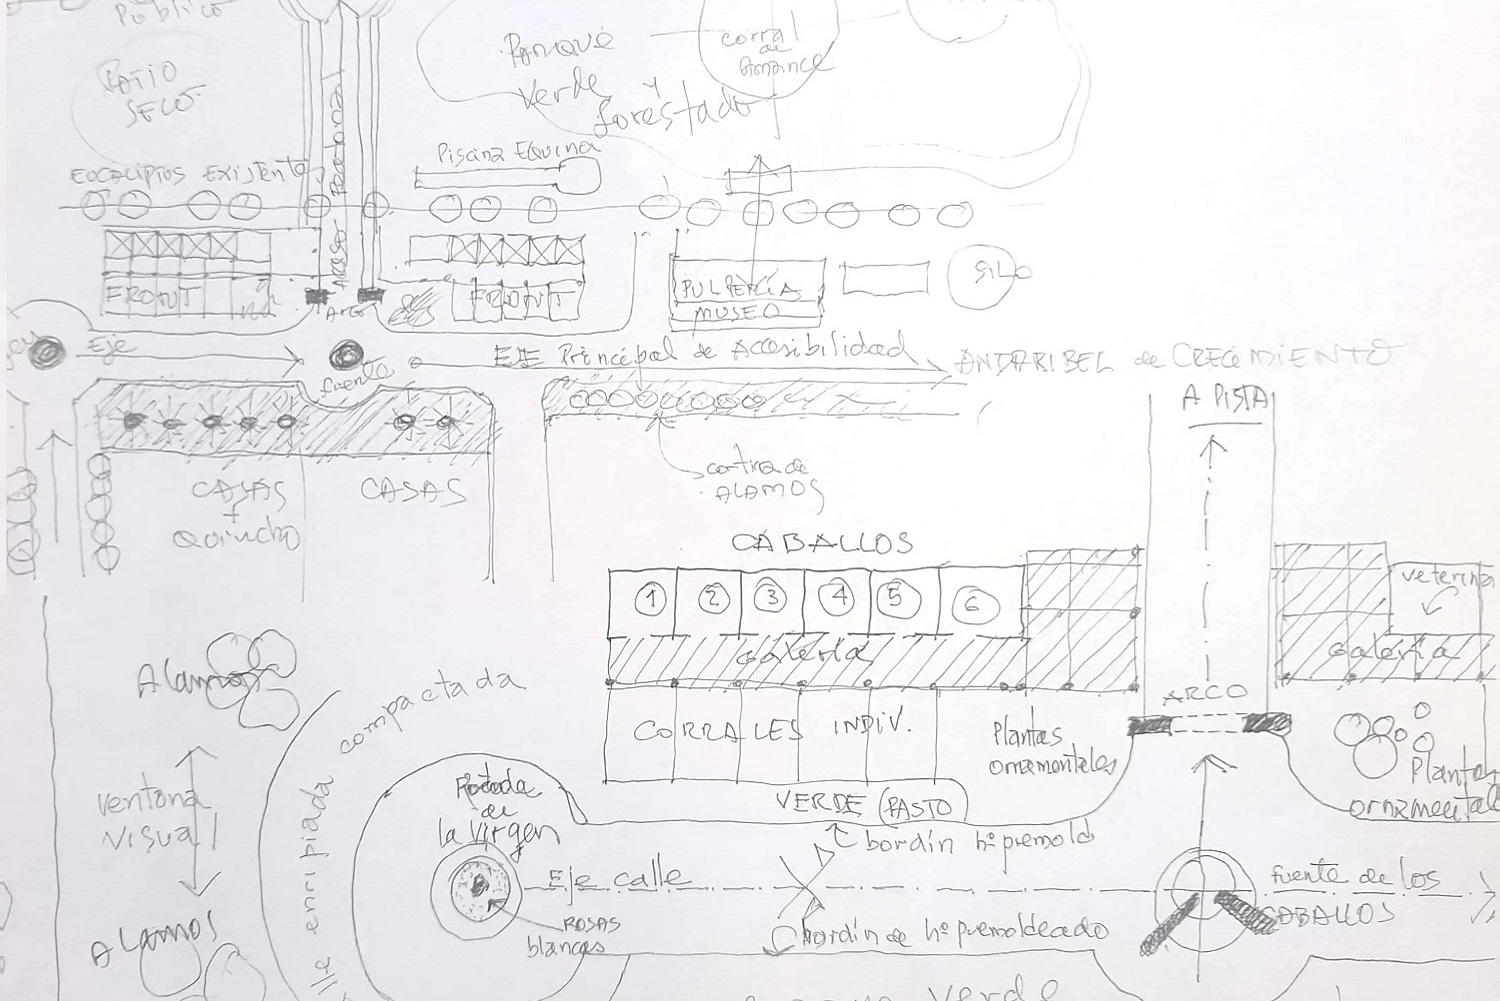 Público
PATIO
SECO
Parque
verde y
forestado
corral
de
Amance
Acceso Peatonal
EUCALIPTOS EXISTENTES
Piscina Equina
FRONT
FRONT
Arco
PULPERÍA
MUSEO
SILO
Eje
fuente
EJE Principal de Accesibilidad
ANDARIBEL de CRECIMIENTO
A PISTA
cortina de
ALAMOS
CASAS
+
Quincho
CASAS
CABALLOS
1 2 3 4 5 6
Galería
veterina
Galería
ARCO
CORRALES INDIV.
Plantas
ornamentales
Plantas
ornamental
VERDE (PASTO)
bordín hº premold
Alamos
ventana
visual
Alamos
enripiada compactada
Rotoda
de
la Virgen
Eje calle
ROSAS
blancas
bordín de hº premoldeado
fuente de los
CABALLOS
verde